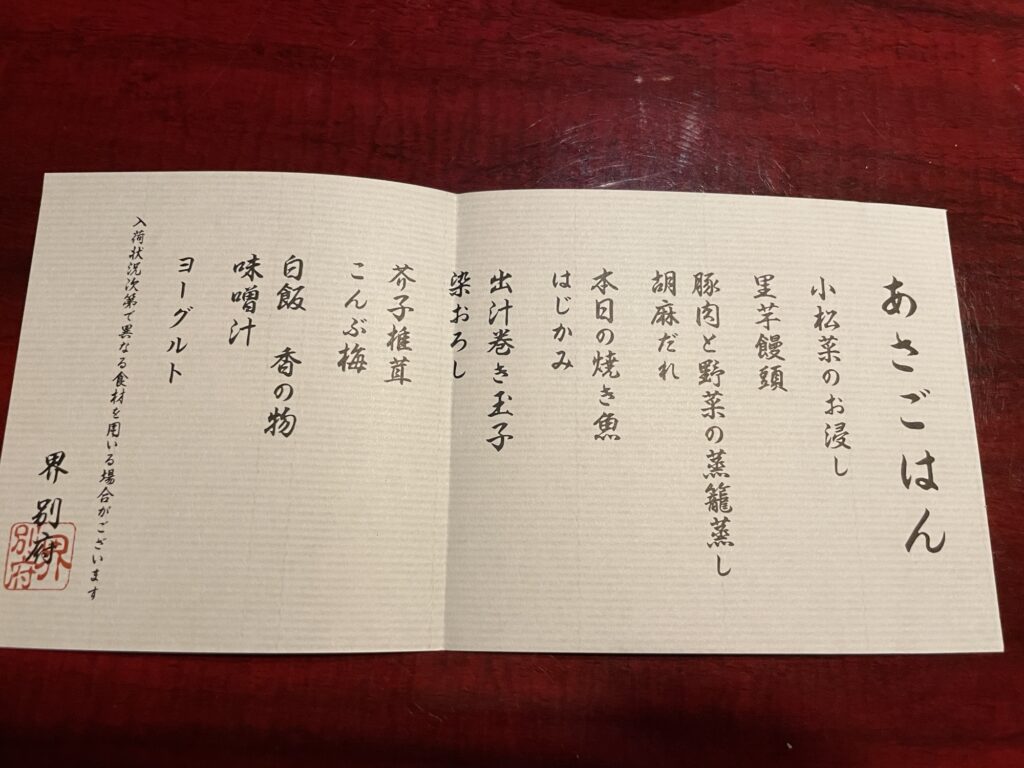 あさごはん
小松菜のお浸し
里芋饅頭
豚肉と野菜の蒸籠蒸し
胡麻だれ
本日の焼き魚
はじかみ
出汁巻き玉子
染おろし
芥子椎茸
こんぶ梅
白飯 香の物
味噌汁
ヨーグルト
入荷状況次第で異なる食材を用いる場合がございます
界 別府
界
別府